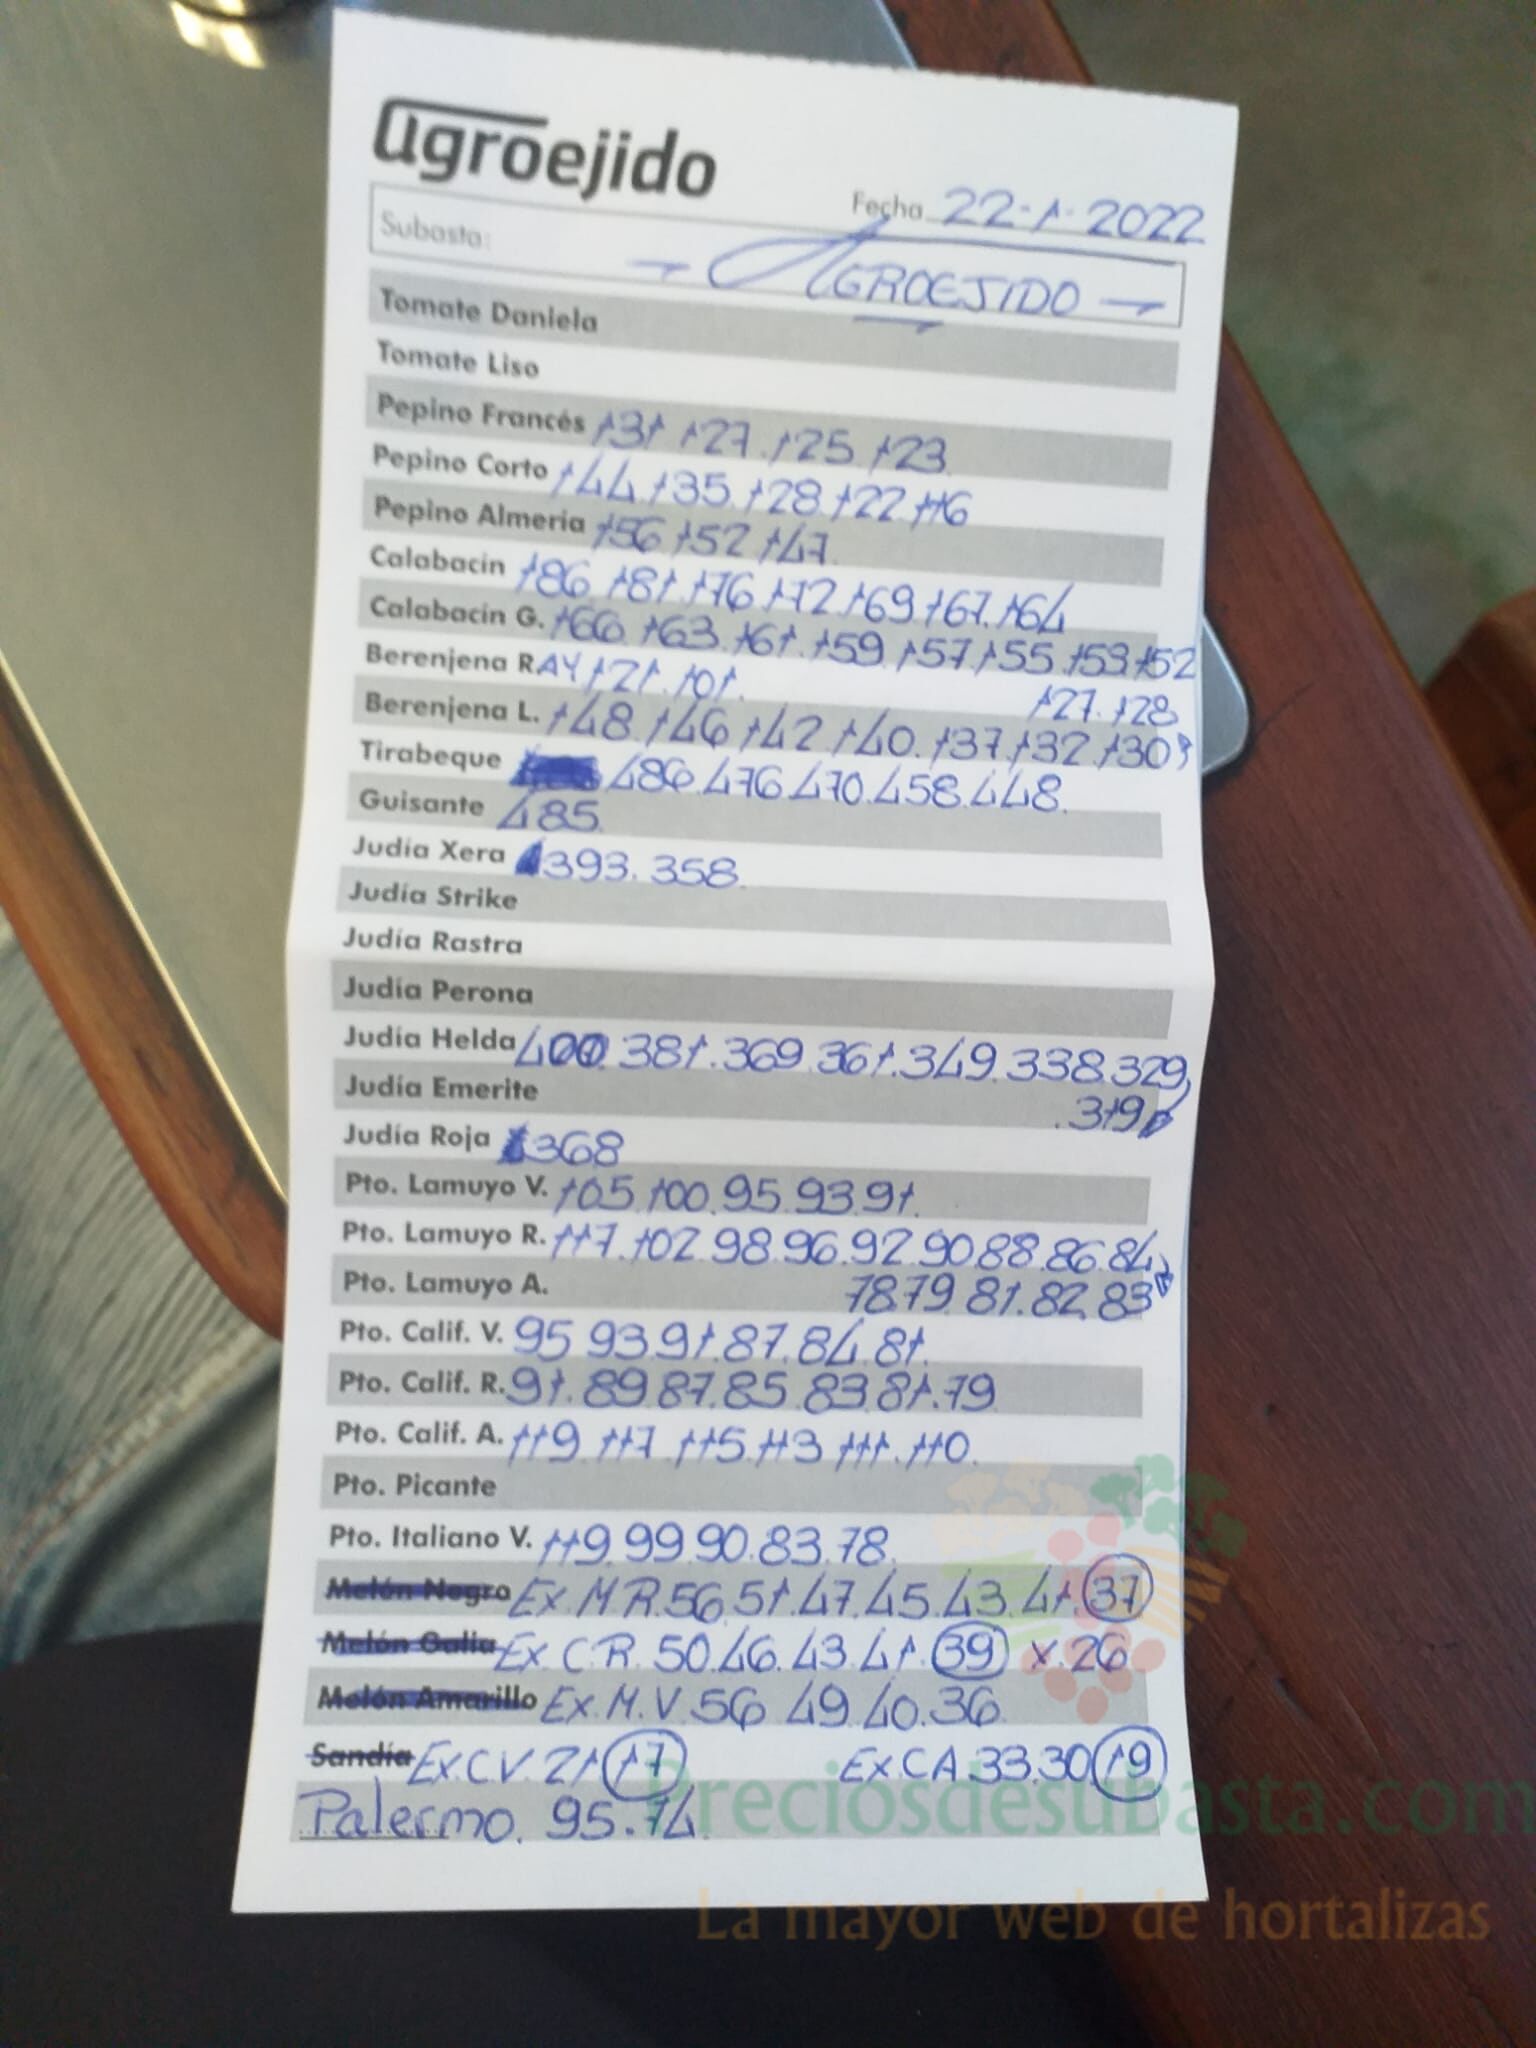 agroejido
Fecha 22-1-2022
Subasta: AGROEJIDO
Tomate Daniela
Tomate Liso
Pepino Francés 131 127. 125. 123
Pepino Corto 144. 135. 128. 122. 116
Pepino Almería 156 152 147
Calabacín 186. 181. 176. 172. 169. 167. 164
Calabacín G. 166. 163. 161. 159. 157. 155. 153. 152
Berenjena RAY 121. 101.
127. 128
Berenjena L. 148. 146 142 140. 137. 132. 130
Tirabeque 486. 476. 470. 458. 448.
Guisante 485.
Judía Xera 393. 358.
Judía Strike
Judía Rastra
Judía Perona
Judía Helda 400. 381. 369. 361. 349. 338. 329
Judía Emerite .319
Judía Roja 368
Pto. Lamuyo V. 105. 100. 95. 93. 91.
Pto. Lamuyo R. 117. 102. 98. 96. 92. 90. 88. 86. 84
Pto. Lamuyo A. 78. 79. 81. 82. 83
Pto. Calif. V. 95 93. 91. 87. 84. 81.
Pto. Calif. R. 91. 89. 87. 85. 83. 81. 79
Pto. Calif. A. 119 117 115. 113 111. 110.
Pto. Picante
Pto. Italiano V. 119. 99. 90. 83. 78.
Melón Negro Ex. M. R. 56. 51. 47. 45. 43. 41. 37
Melón Galia Ex. C. R. 50. 46. 43. 41. 39 x. 26
Melón Amarillo Ex. M. V. 56 49. 40. 36.
Sandía Ex. C. V. 21 17 Ex. CA. 33. 30 19
Palermo. 95. 74.
Preciosdesubasta.com
La mayor web de hortalizas